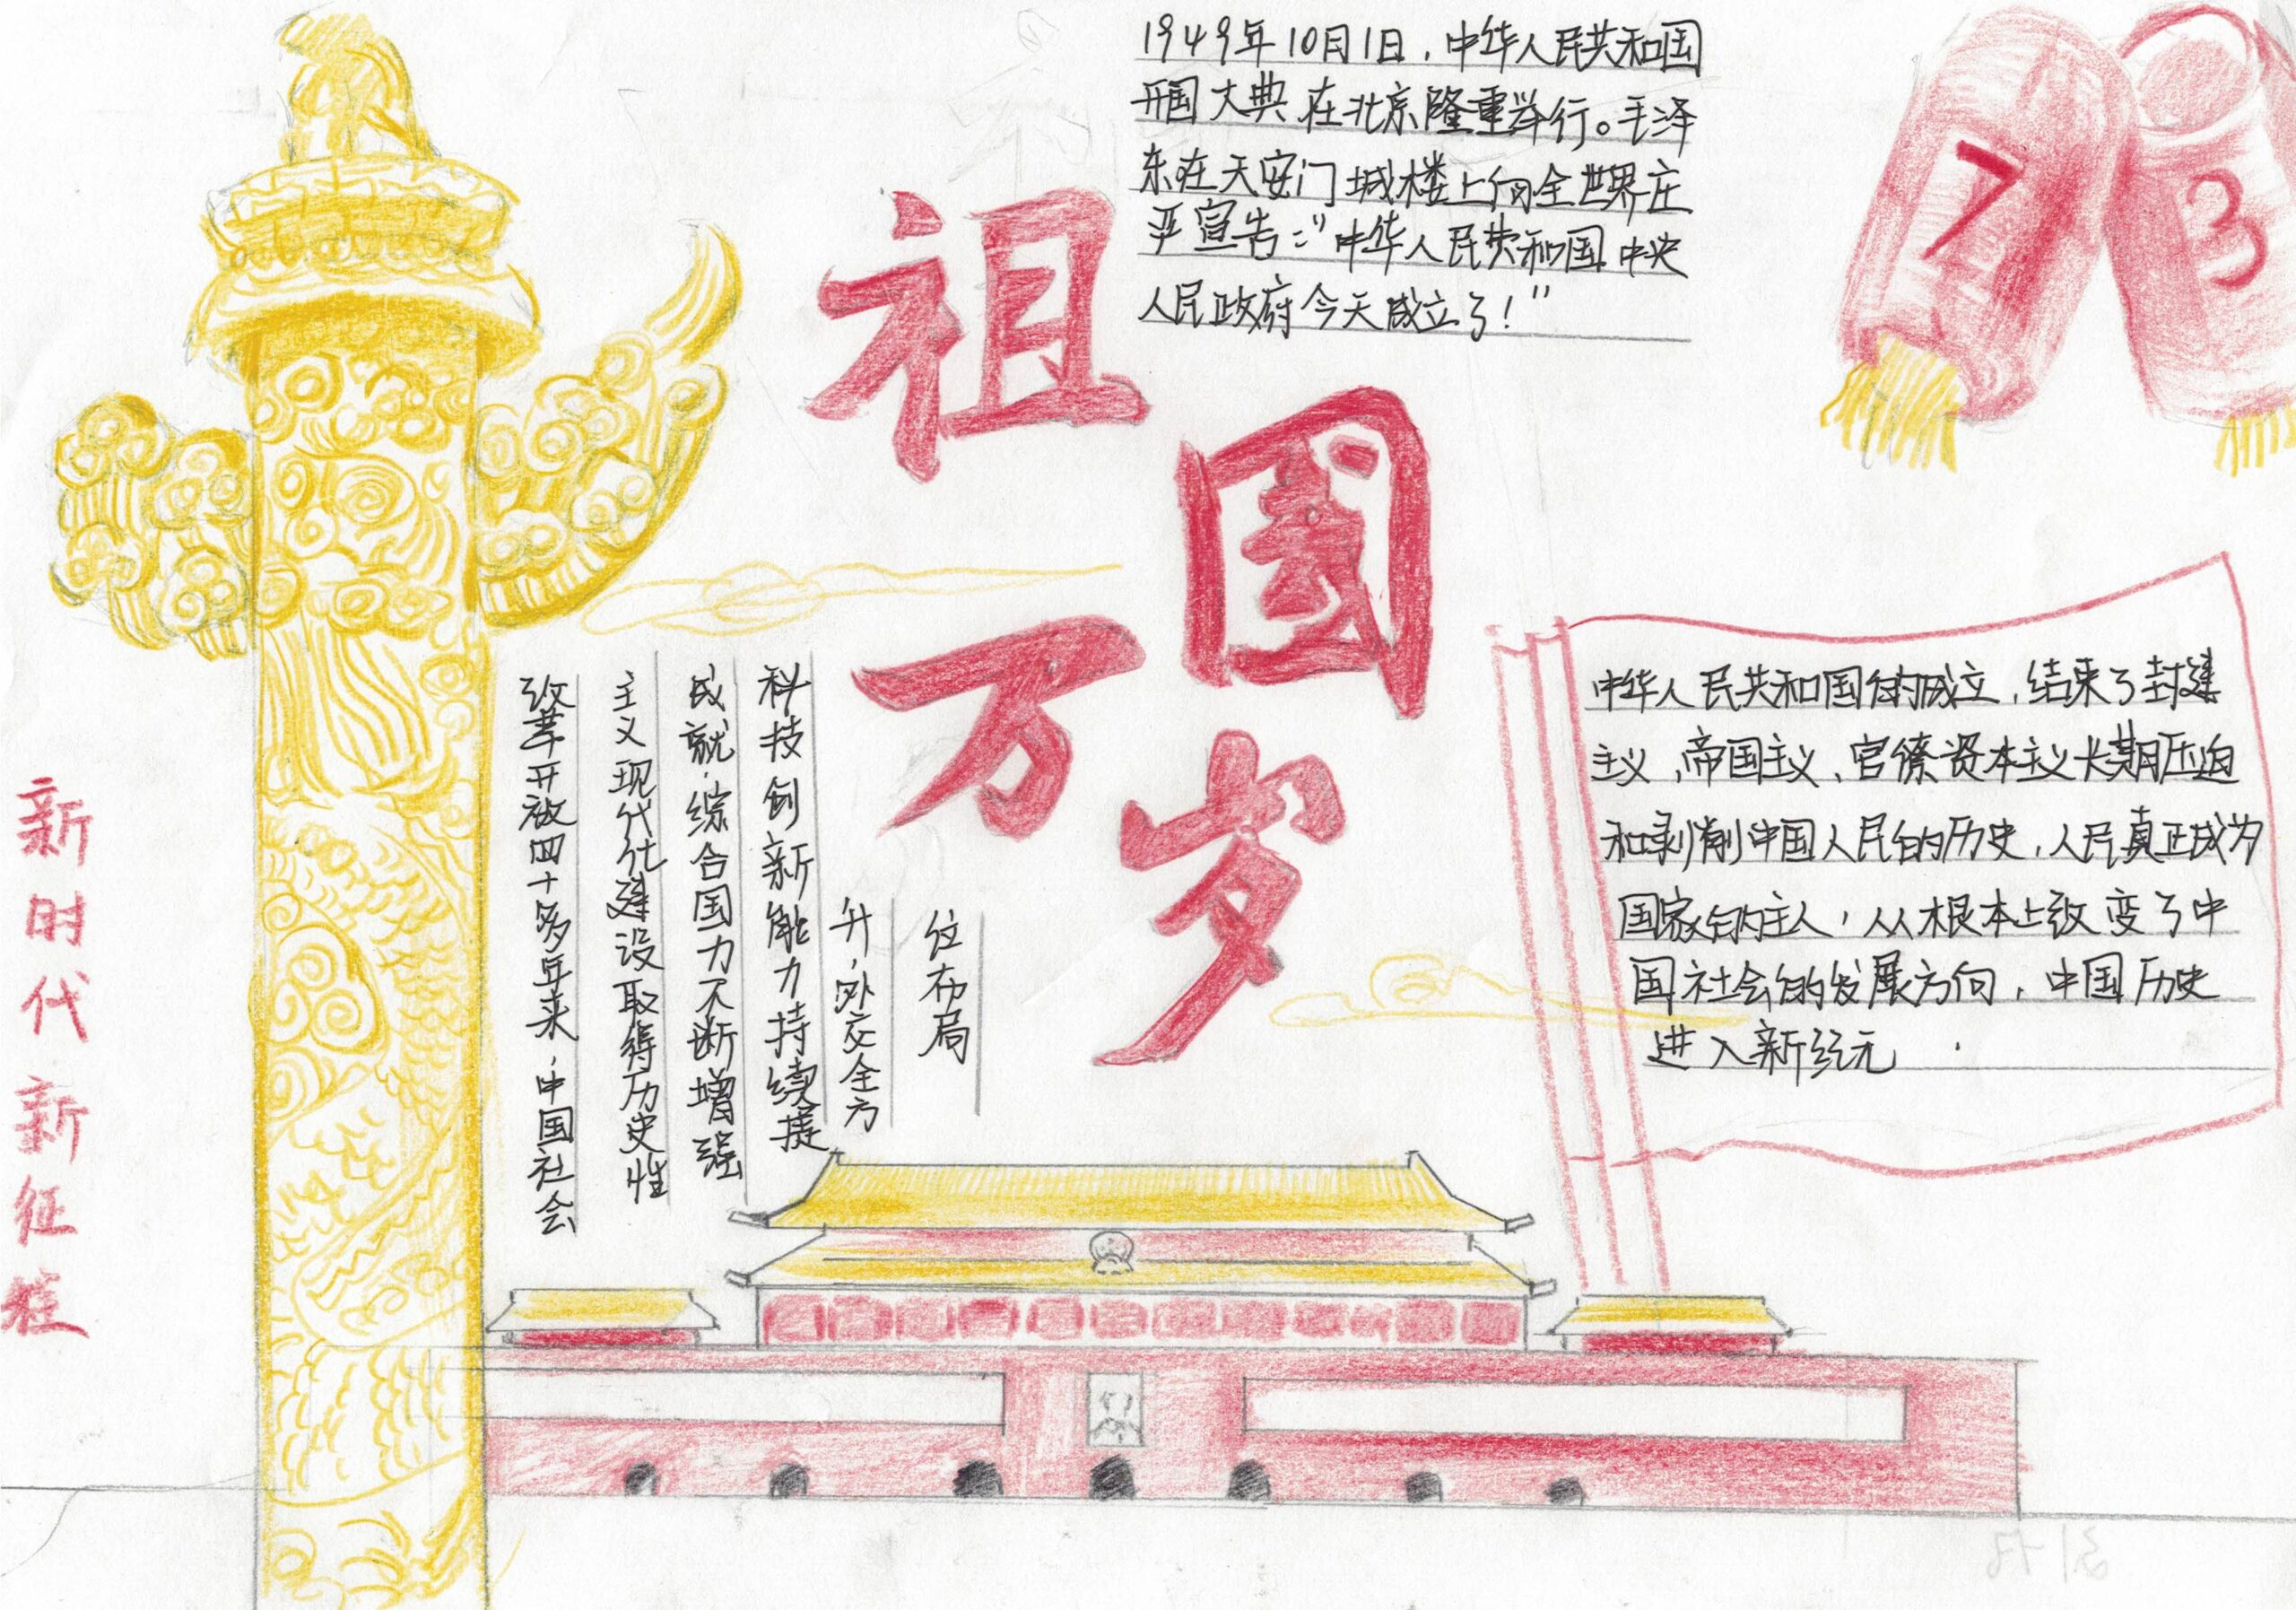 1949年10月1日，中华人民共和国
开国大典在北京隆重举行。毛泽
东在天安门城楼上向全世界庄
严宣告："中华人民共和国中央
人民政府今天成立了！"
7
3
祖
国
万
岁
改革开放四十多年来，中国社会
主义现代化建设取得历史性
成就，综合国力不断增强
科技创新能力持续提
升，外交全方
位布局
中华人民共和国的成立，结束了封建
主义，帝国主义、官僚资本主义长期压迫
和剥削中国人民的历史，人民真正成为
国家的主人，从根本上改变了中
国社会的发展方向，中国历史
进入新纪元．
新时代新征程